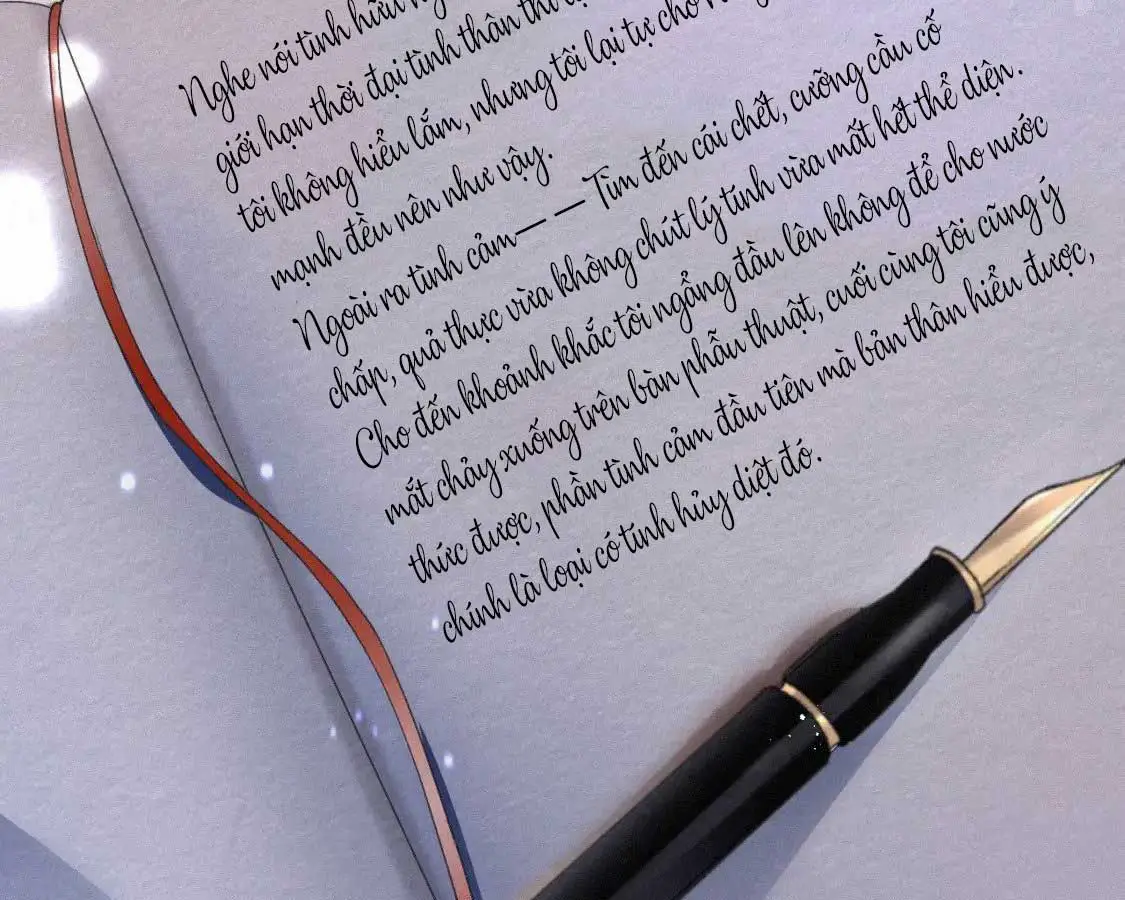 Nghe nói tình hữu
giới hạn thời đại tình thân thì
tôi không hiểu lắm, nhưng tôi lại tự cho
mạnh đều nên như vậy.
Ngoài ra tình cảm— —Tìm đến cái chết, cưỡng cầu cố
chấp, quả thực vừa không chút lý tính vừa mất hết thể diện.
Cho đến khoảnh khắc tôi ngẩng đầu lên không để cho nước
mắt chảy xuống trên bàn phẫu thuật, cuối cùng tôi cũng ý
thức được, phần tình cảm đầu tiên mà bản thân hiểu được,
chính là loại có tính hủy diệt đó.